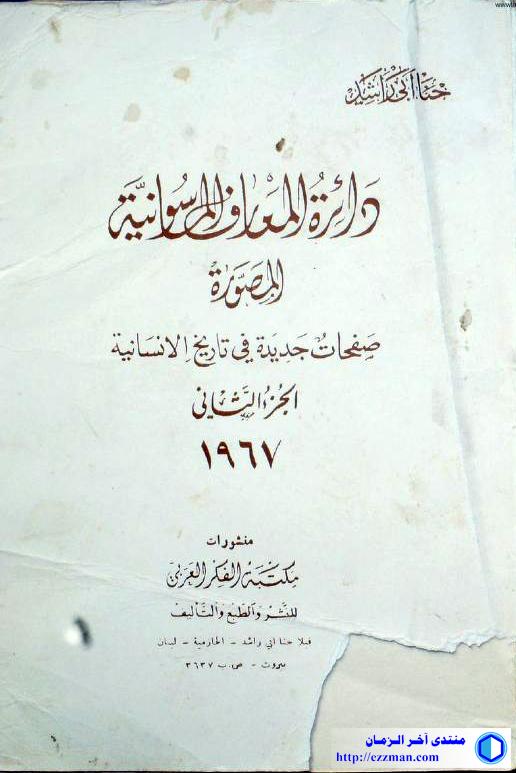 www.a
حنا أبي راشد
دائرة المعارف الماسونية
المصورة
صفحات جديدة في تاريخ الإنسانية
الجزء الثاني
١٩٦٧
منشورات
مكتبة الفكر العربي
للنشر والطبع والتأليف
فيلا حنا ابي راشد - الحازمية - لبنان
بيروت - ص.ب ٣٦٣٧
منتدى آخر الزمان
http://ezzman.com